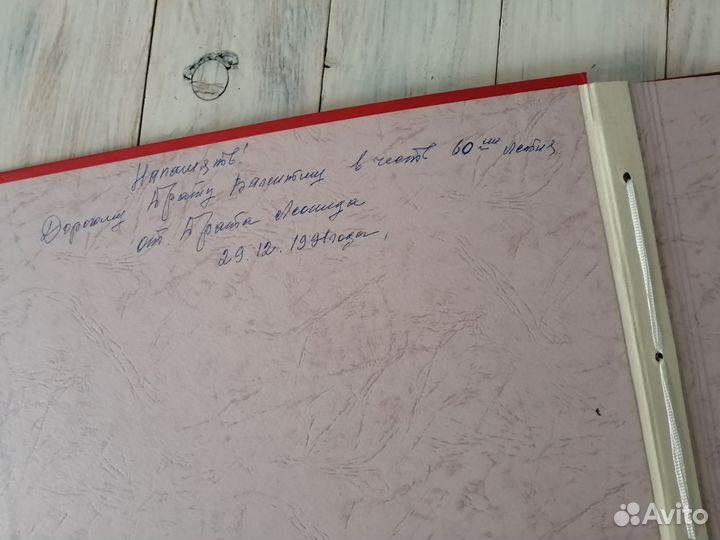 На память!
Дорогому Брату Валентину в честь 60ти летия
от Брата Леонида
29.12.1991 года,
Avito